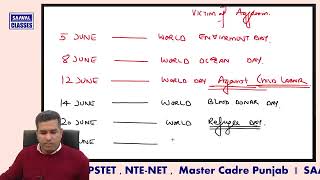 SAAWAL CLASSES
VICTIM of Aggression.
5 JUNE — WORLD ENVIRMENT DAY.
8 JUNE — WORLD OCEAN DAY.
12 JUNE — WORLD DAY Against CHILD LABOUR
14 JUNE — WORLD BLOOD DONAR DAY.
20 JUNE — WORLD Refugee DAY.
JUNE —
PSTET , NTE-NET , Master Cadre Punjab | SAA